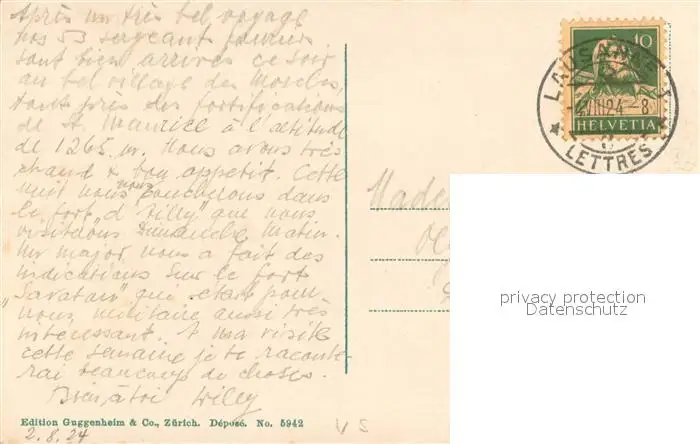 Après un très bel voyage
nos 53 sergeant fourriers
sont bien arrivés ce soir
au bel village des Morcles,
tout près des fortifications
de St. Maurice à l'altitude
de 1265 m. Nous avons très
chaud & bon appetit. Cette
nuit nous nous coucherons dans
le fort "d'Ailly" que nous
visitons Dimanche Matin.
Mr major nous a fait des
indications sur le fort
"Savatan" qui était pour
nous militaire aussi très
intéressant. A ma visite
cette semaine je te raconte-
rai beaucoup de choses.
Willy
Edition Guggenheim & Co., Zürich. Déposé. No. 5942
2.8.24
V S
10
HELVETIA
LAUSANNE 1
VIII 24 - 8
LETTRES
Made
privacy protection
Datenschutz